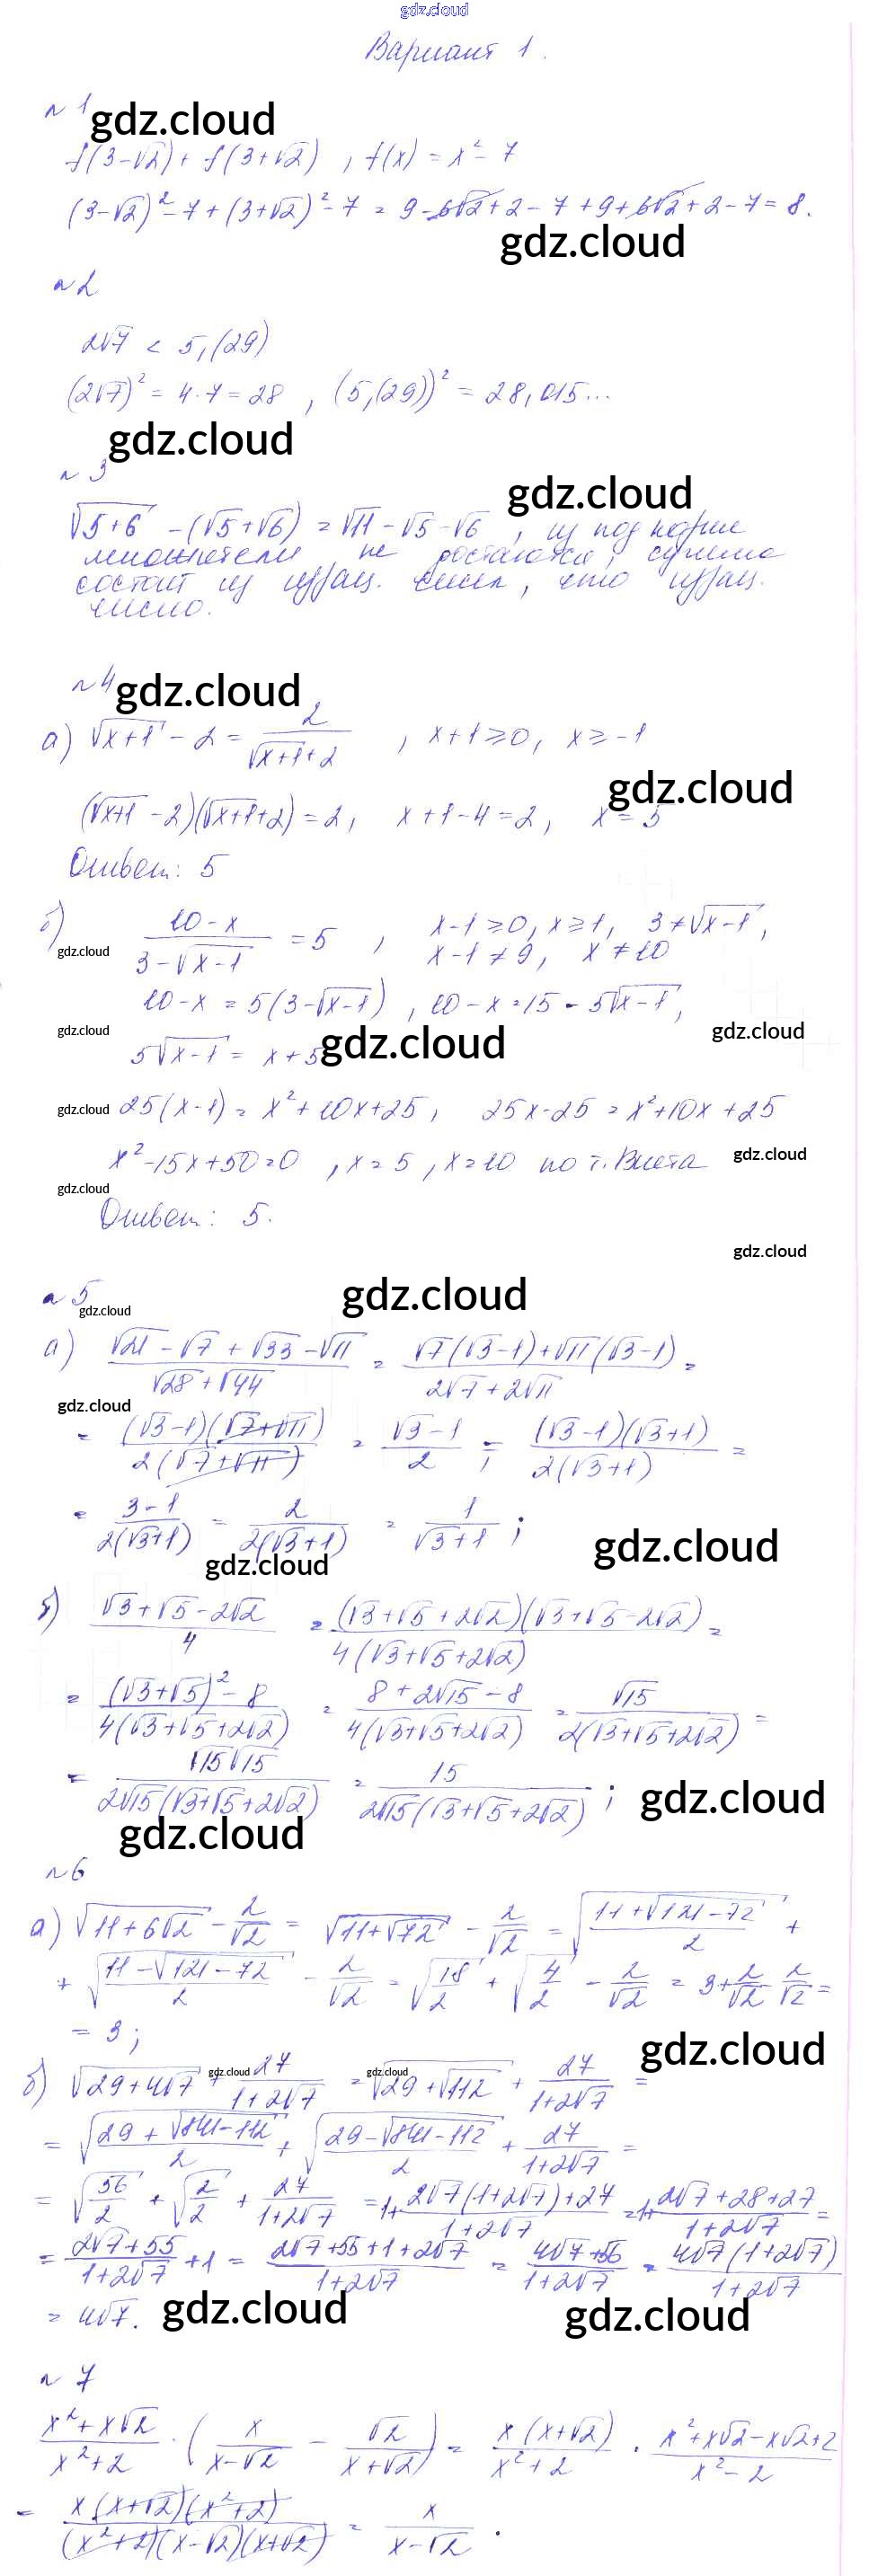 gdz.cloud
Вариант 1.
n 1
gdz.cloud
f(3-√2) + f(3+√2) , f(x) = x² - 7
(3-√2)² - 7 + (3+√2)² - 7 = 9 - 6√2 + 2 - 7 + 9 + 6√2 + 2 - 7 = 8.
gdz.cloud
n 2
2√7 < 5,(29)
(2√7)² = 4·7 = 28 , (5,(29))² = 28,015...
gdz.cloud
n 3
gdz.cloud
√5+6 - (√5+√6) = √11 - √5 - √6 , из под корня
множители не достаются, сумма
состоит из иррац. чисел, что иррац.
число.
n 4
gdz.cloud
а) √x+1 - 2 = 2/(√x+1 + 2) , x+1 ≥ 0, x ≥ -1
gdz.cloud
(√x+1 - 2)(√x+1 + 2) = 2, x+1-4 = 2, x = 5
Ответ: 5
б) (10-x)/(3-√x-1) = 5 , x-1 ≥ 0, x ≥ 1, 3 ≠ √x-1,
gdz.cloud
x-1 ≠ 9, x ≠ 10
10-x = 5(3-√x-1) , 10-x = 15 - 5√x-1,
gdz.cloud
gdz.cloud
5√x-1 = x+5
gdz.cloud
gdz.cloud
25(x-1) = x²+10x+25, 25x-25 = x²+10x+25
x²-15x+50=0 , x=5, x=10 по т. Виета
gdz.cloud
gdz.cloud
Ответ: 5.
gdz.cloud
n 5
gdz.cloud
gdz.cloud
а) (√21 - √7 + √33 - √11)/(√28 + √44) = (√7(√3-1)+√11(√3-1))/(2√7+2√11) =
gdz.cloud
= ((√3-1)(√7+√11))/(2(√7+√11)) = (√3-1)/2 = ((√3-1)(√3+1))/(2(√3+1)) =
= (3-1)/(2(√3+1)) = 2/(2(√3+1)) = 1/(√3+1) ;
gdz.cloud
gdz.cloud
б) (√3+√5-2√2)/4 = ((√3+√5+2√2)(√3+√5-2√2))/(4(√3+√5+2√2)) =
= ((√3+√5)²-8)/(4(√3+√5+2√2)) = (8+2√15-8)/(4(√3+√5+2√2)) = √15/(2(√3+√5+2√2)) =
= (√15√15)/(2√15(√3+√5+2√2)) = 15/(2√15(√3+√5+2√2)) ;
gdz.cloud
gdz.cloud
n 6
а) √11+6√2 - 2/√2 = √11+√72 - 2/√2 = √(11+√121-72)/2 +
+ √(11-√121-72)/2 - 2/√2 = √18/2 + √4/2 - 2/√2 = 3 + 2/√2 - 2/√2 =
= 3;
gdz.cloud
б) √29+4√7 + 27/(1+2√7) = √29+√112 + 27/(1+2√7) =
gdz.cloud
gdz.cloud
= √(29+√841-112)/2 + √(29-√841-112)/2 + 27/(1+2√7) =
= √56/2 + √2/2 + 27/(1+2√7) = 1+ (2√7(1+2√7)+27)/(1+2√7) = 1+ (2√7+28+27)/(1+2√7) =
= (2√7+55)/(1+2√7) + 1 = (2√7+55+1+2√7)/(1+2√7) = (4√7+56)/(1+2√7) = (4√7(1+2√7))/(1+2√7)
= 4√7.
gdz.cloud
gdz.cloud
n 7
(x²+x√2)/(x²+2) · (x/(x-√2) - √2/(x+√2)) = (x(x+√2))/(x²+2) · (x²+x√2-x√2+2)/(x²-2)
= (x(x+√2)(x²+2))/((x²+2)(x-√2)(x+√2)) = x/(x-√2) .